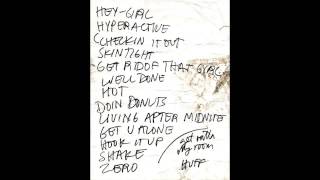 HEY-GIRL
HYPERACTIVE
CHECKIN IT OUT
SKINTIGHT
GET RID OF THAT GIRL
WELL DONE
HOT
DOIN DONUTS
LIVING AFTER MIDNITE
GET U ALONE
HOOK IT UP
SHAKE
ZERO
get outta
my room
HUFF